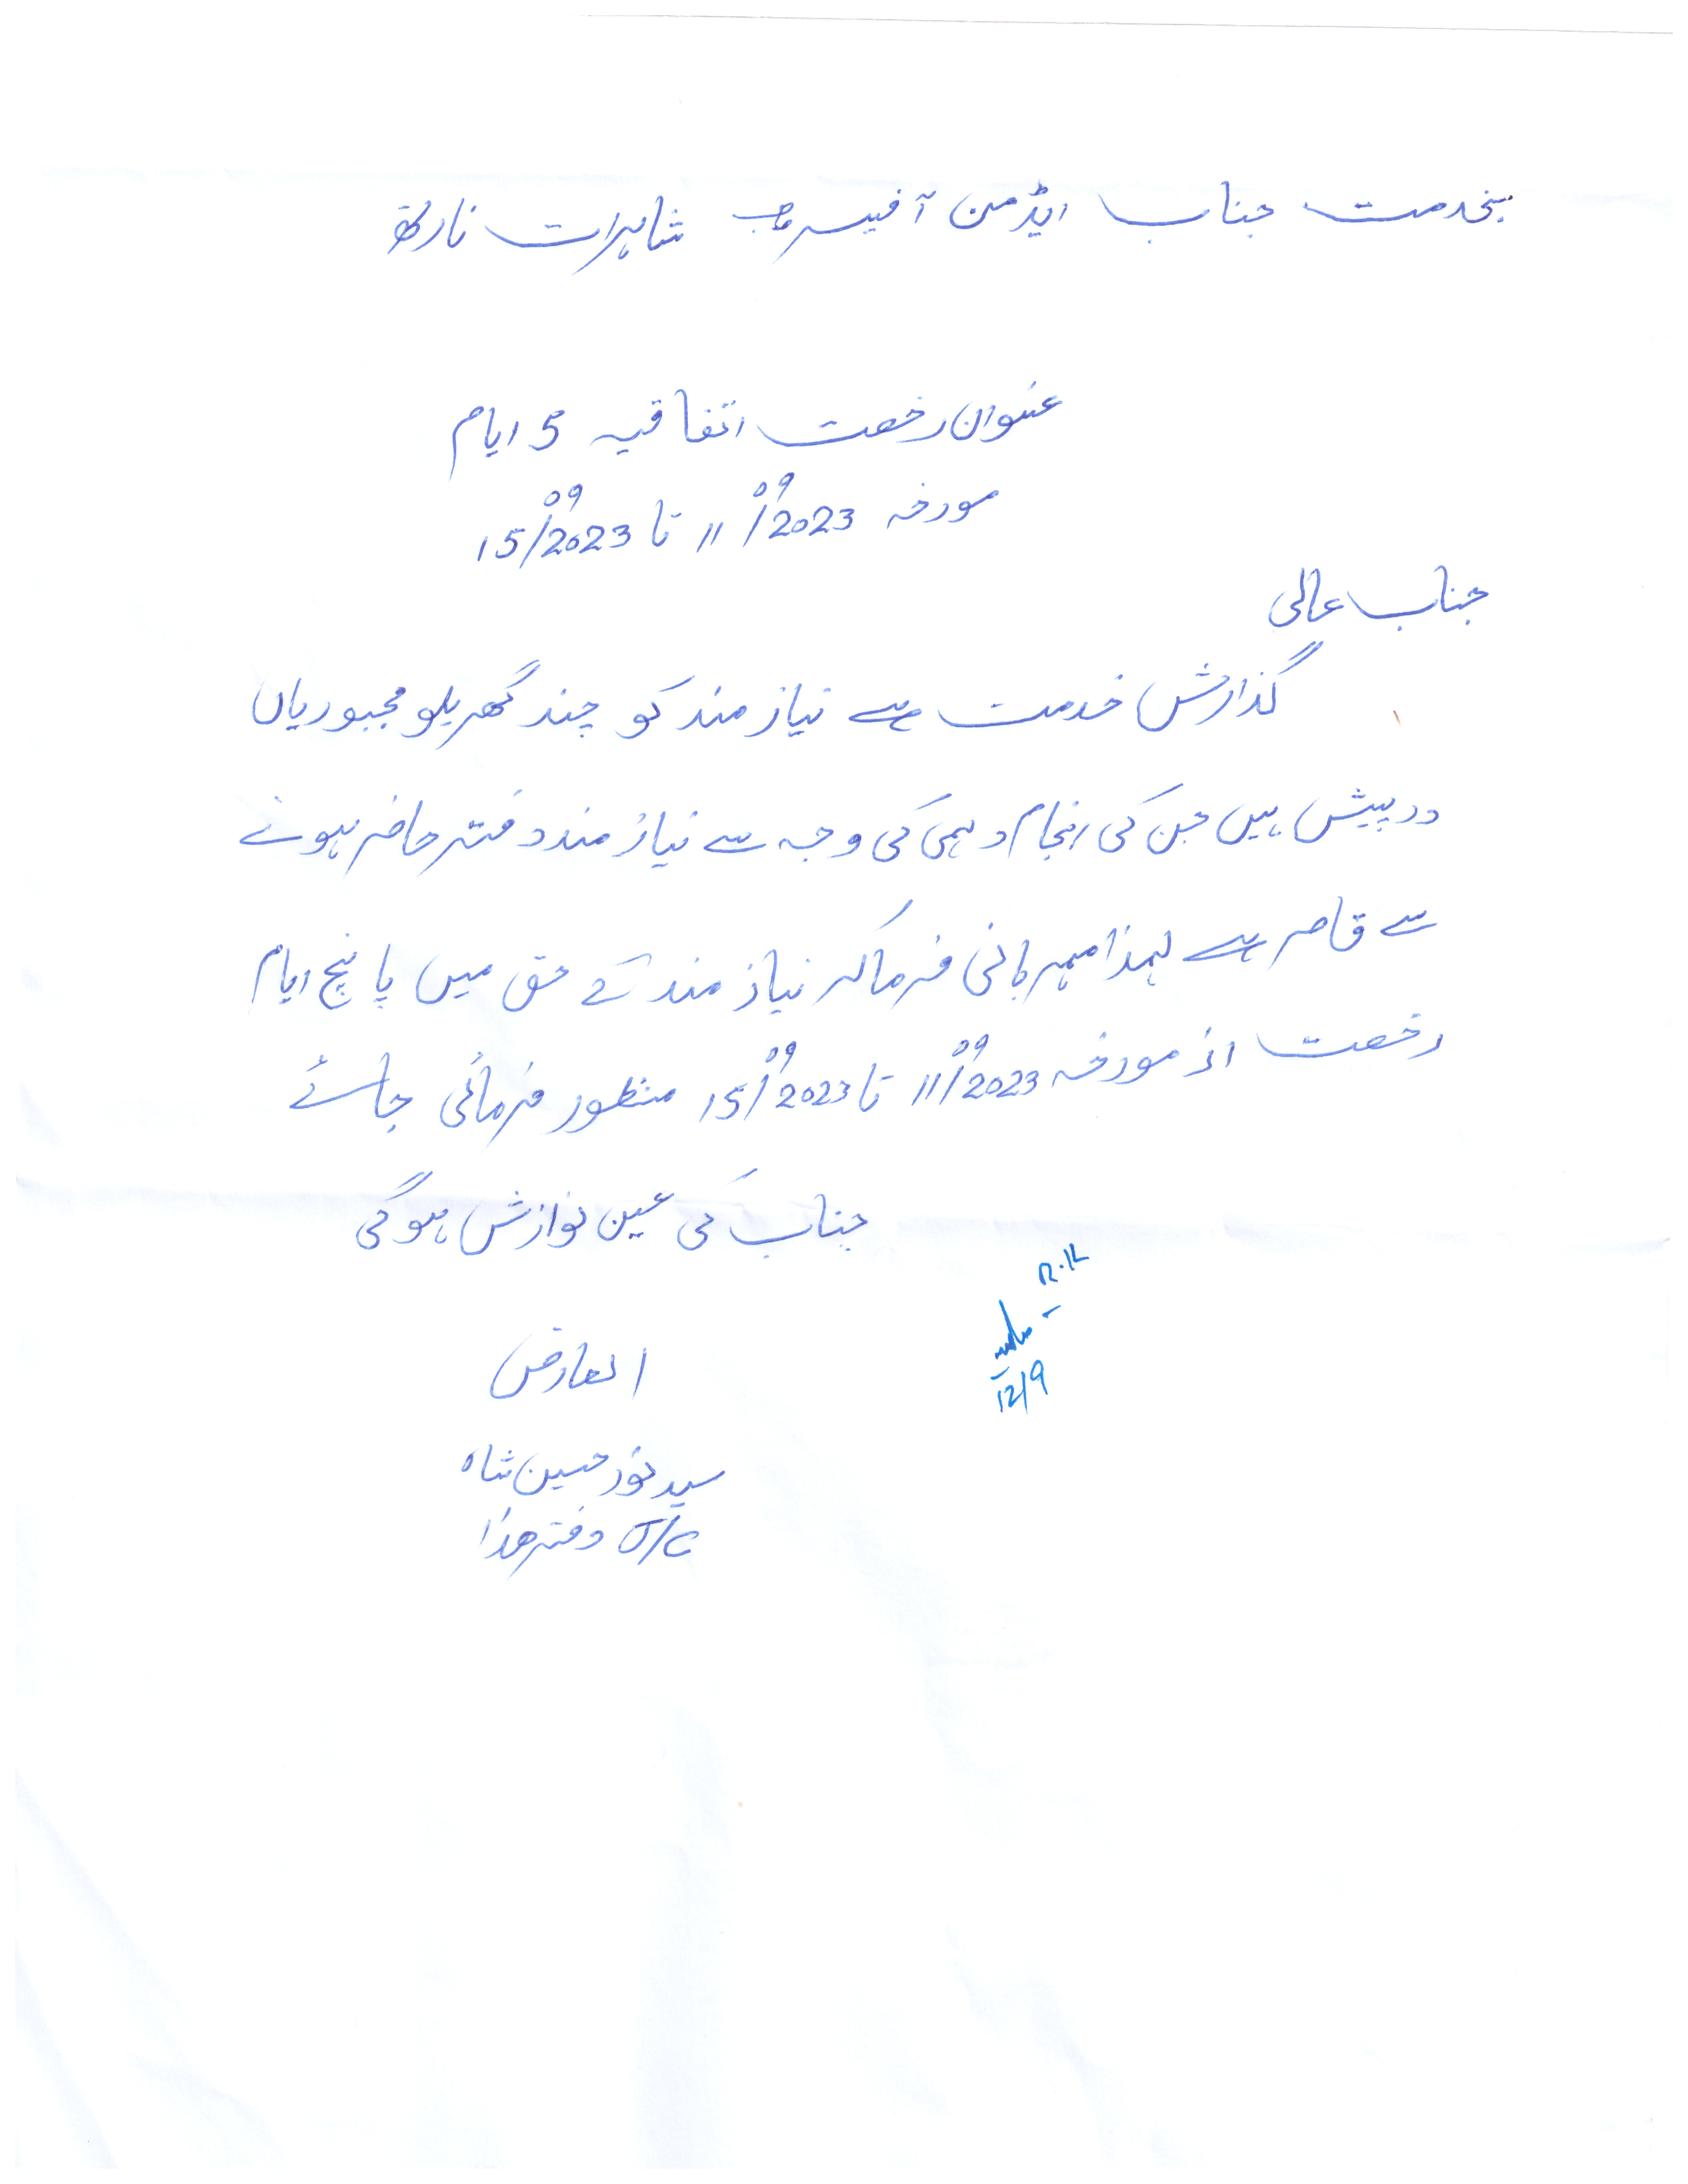 بخدمت جناب ایڈمن آفیسر صاحب شاہرات نارتھ
عنوان رخصت اتفاقیہ 5 ایام
مورخہ 11/09/2023 تا 15/09/2023
جناب عالی
گذارش خدمت ہے نیاز مند کو چند گھریلو مجبوریاں
درپیش ہیں جن کی انجام دہی کی وجہ سے نیاز مند دفتر حاضر ہونے
سے قاصر ہے لہذا مہربانی فرما کر نیاز مند کے حق میں پانچ ایام
رخصت از مورخہ 11/09/2023 تا 15/09/2023 منظور فرمائی جائے
جناب کی عین نوازش ہوگی
R.K
12/9
العارض
سید نور حسین شاہ
J/C دفتر ھذا